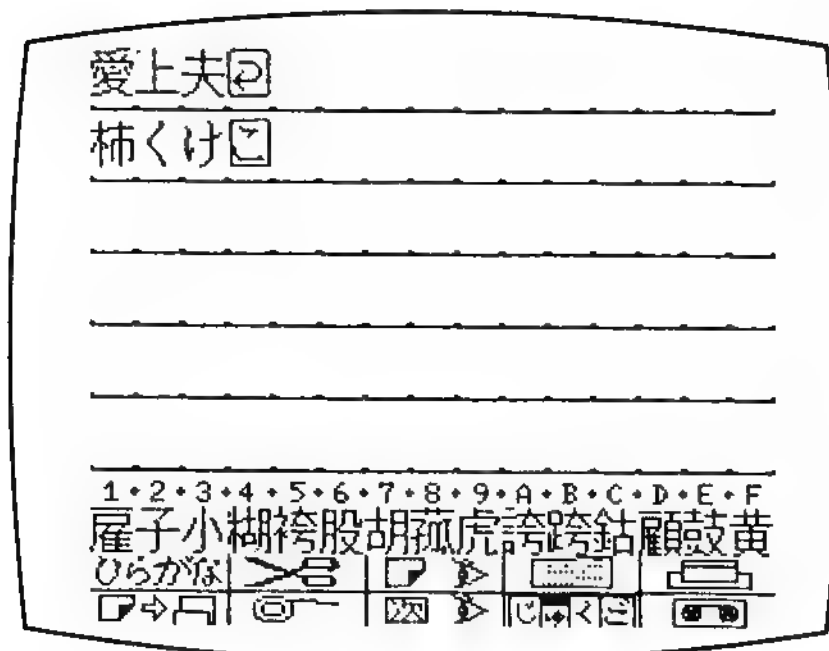 愛上夫
柿くけこ
1・2・3・4・5・6・7・8・9・A・B・C・D・E・F
雇子小糊袴股胡菰虎誇跨鈷顧鼓黄
ひらがな
次 じゅくご